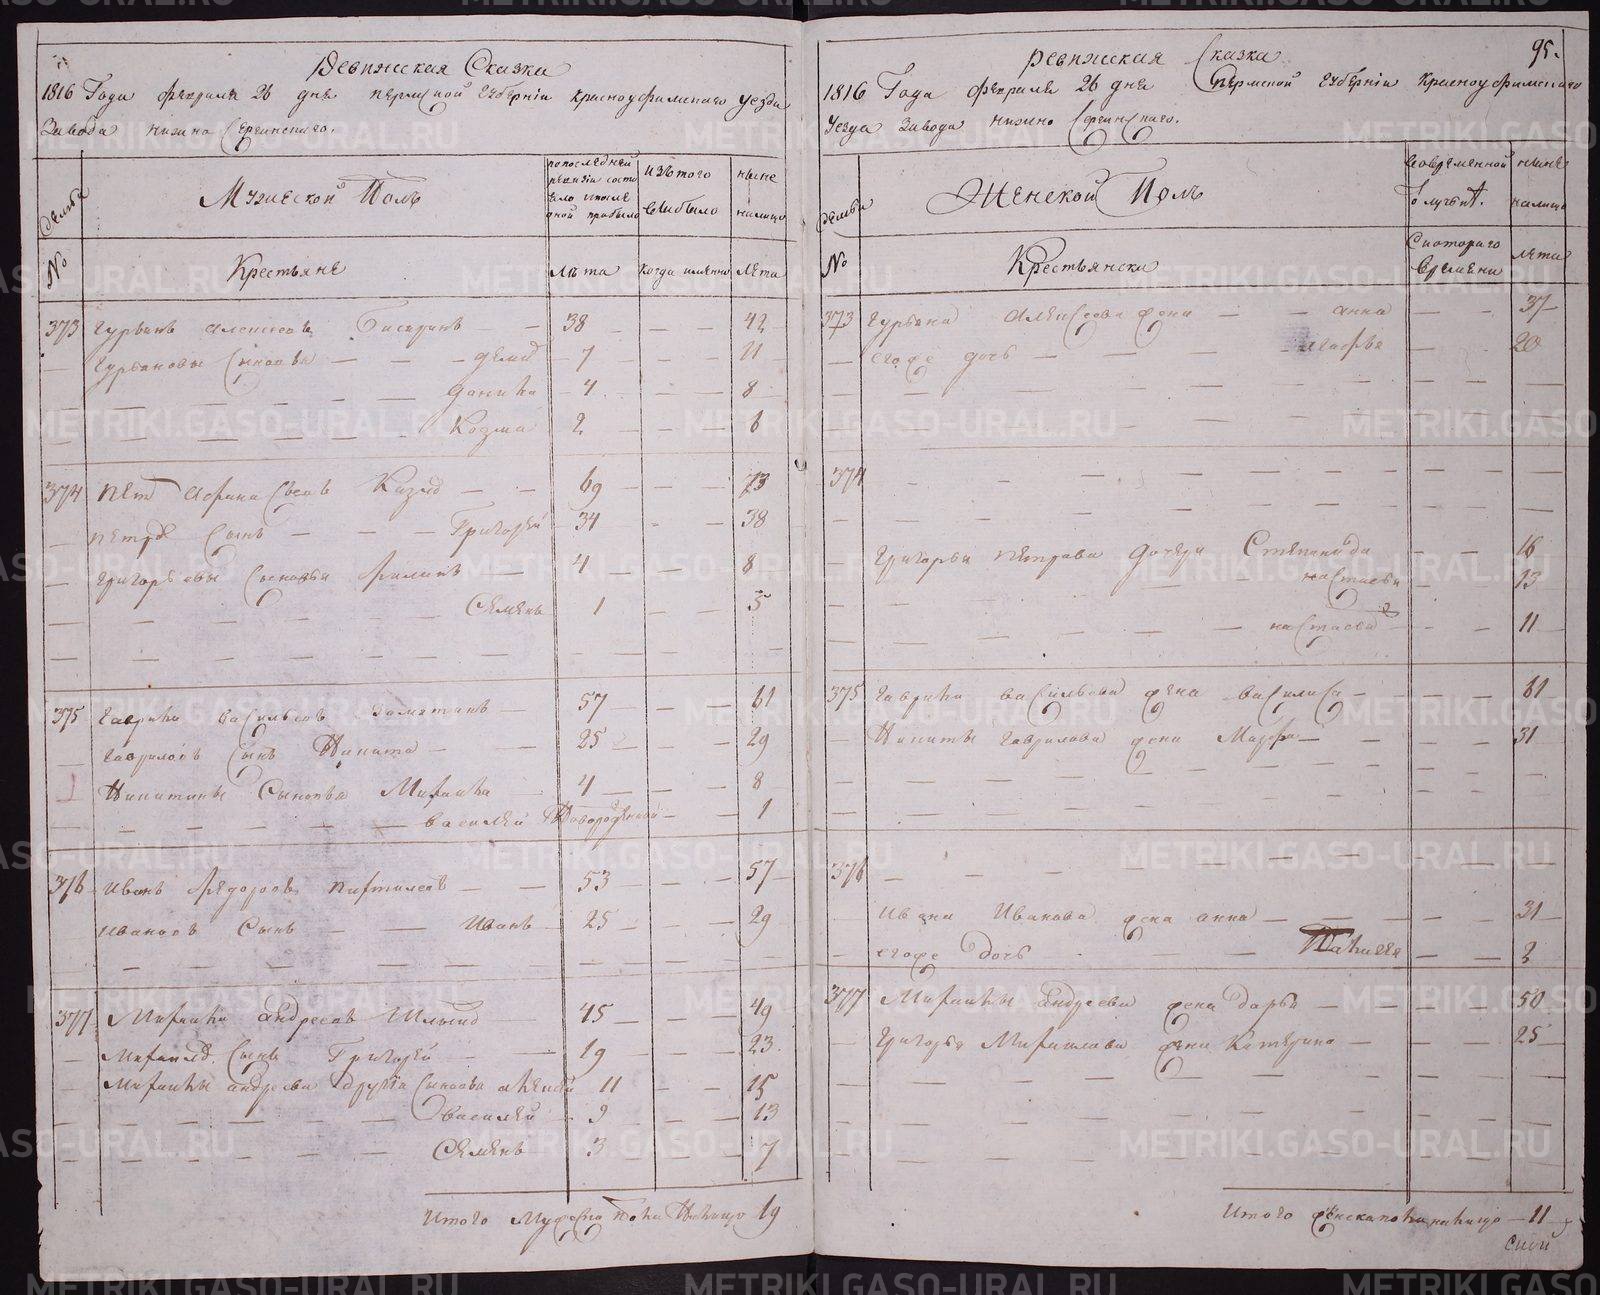 Ревижская Сказка
1816 Года февраля 26 дня пермской губернии красноуфимскаго уезда
Завода нижно Сергинскаго.
семьи
Мужескои Полъ
по последней ревизiи состояло и после оной прибыло
изътого выбыло
ныне налицо
№
Крестьяне
лѣта
когда имянно
лета
373 Гурьянъ алексеевъ — 38 — — 42
Гурьяновы Сыновья — — демид 7 — — 11
данила 4 — — 8
Козма 2 — — 6
374 пет афанасьевъ — — 69 — — 73
петра Сынъ — — — Григорей 34 — — 38
григорьевы Сыновья филипъ — 4 — — 8
Семенъ 1 — — 5
375 гаврила васильевъ — 57 — — 61
гавриловъ Сынъ Никита — — 25 — — 29
Никитины Сыновья Михаила — 4 — — 8
василей Новорожденной — — 1
376 иванъ федоровъ — — 53 — — 57
ивановъ Сынъ — — Иванъ 25 — — 29
377 Михаила андреевъ — 45 — — 49
Михаила Сынъ Григорей — — 19 — — 23
Михаилы андреева другiя Сыновья алексей 11 — — 15
василей 9 — — 13
Семенъ 3 — — 7
Итого Мужеска пола Налицо 19
95.
ревижская Сказка
1816 Года февраля 26 дня Пермской губернiи красноуфимскаго
Уезда Завода нижно Сергинскаго.
семьи
Женской Полъ
вовременной отлучкѣ.
ныне налицо
№
Крестьянски
Скотораго времени
лета
373 Гурьяна алексеева жена — — анна — — 37
егоже дочь — — — агафья — — 20
374
Григорья петрова дочери Степанида — — 16
настасья — — 13
настасья 2 — — 11
375 гаврила васильева жена василиса — — — 61
Никиты гаврилова жена Марфа — — — 31
376
Ивана Иванова жена анна — — — — 31
егоже дочь — — — — 2
377 Михаилы андреева жена дарья — — — 50
Григорья Михаилова жена катерина — — — 25
Итого женска пола налицо — 11
METRIKI.GASO-URAL.RU